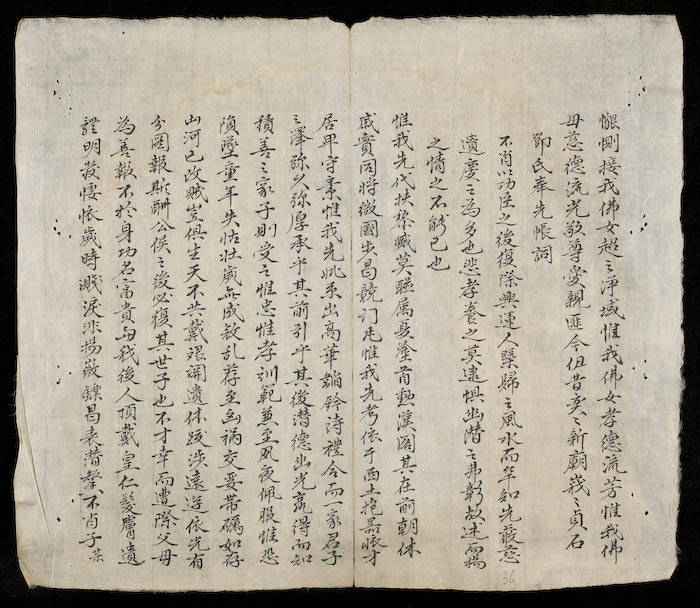 懇惻接我佛女超之淨域惟我佛女孝德流芳惟我佛
母慈德流光敬尊愛親匪今伹昔奕々新廟峩々貞石
鄧氏奉先帳詞
不肖以功臣之後復際興運人槩歸之風水而罕知先嚴慈
遺慶之為多也悲孝養之莫逮惧幽潛之弗彰故述而揚
之情之不能已也
惟我先代扶黎臧莫聴属具瑩首勲溪閣其在前朝休
戚實同將微國步昌競門凡惟我先考依于西土抱器晦才
居卑守素惟我先妣系出高華韜鈐詩禮合而一家君子
之澤弥久弥厚承乎其前引乎其後潜德幽光寔得而知
積善之家子則受之惟忠惟孝訓範兼至夙夜佩服惟恐
隕墜童年失怙壮歲無成赦乱荐至凶禍交要帯礪如存
山河已改賊豈俱生天不共戴艰関遺体跋渉遠逰依光有
分図報斯酬公侯之後必復其世子也不才幸而遭際父母
為善報不於身功名富貴留我後人頂戴皇仁髪膚遺
證明發悽依歲時濺淚非揚徽鑠昌表潛馨不肖子某
36